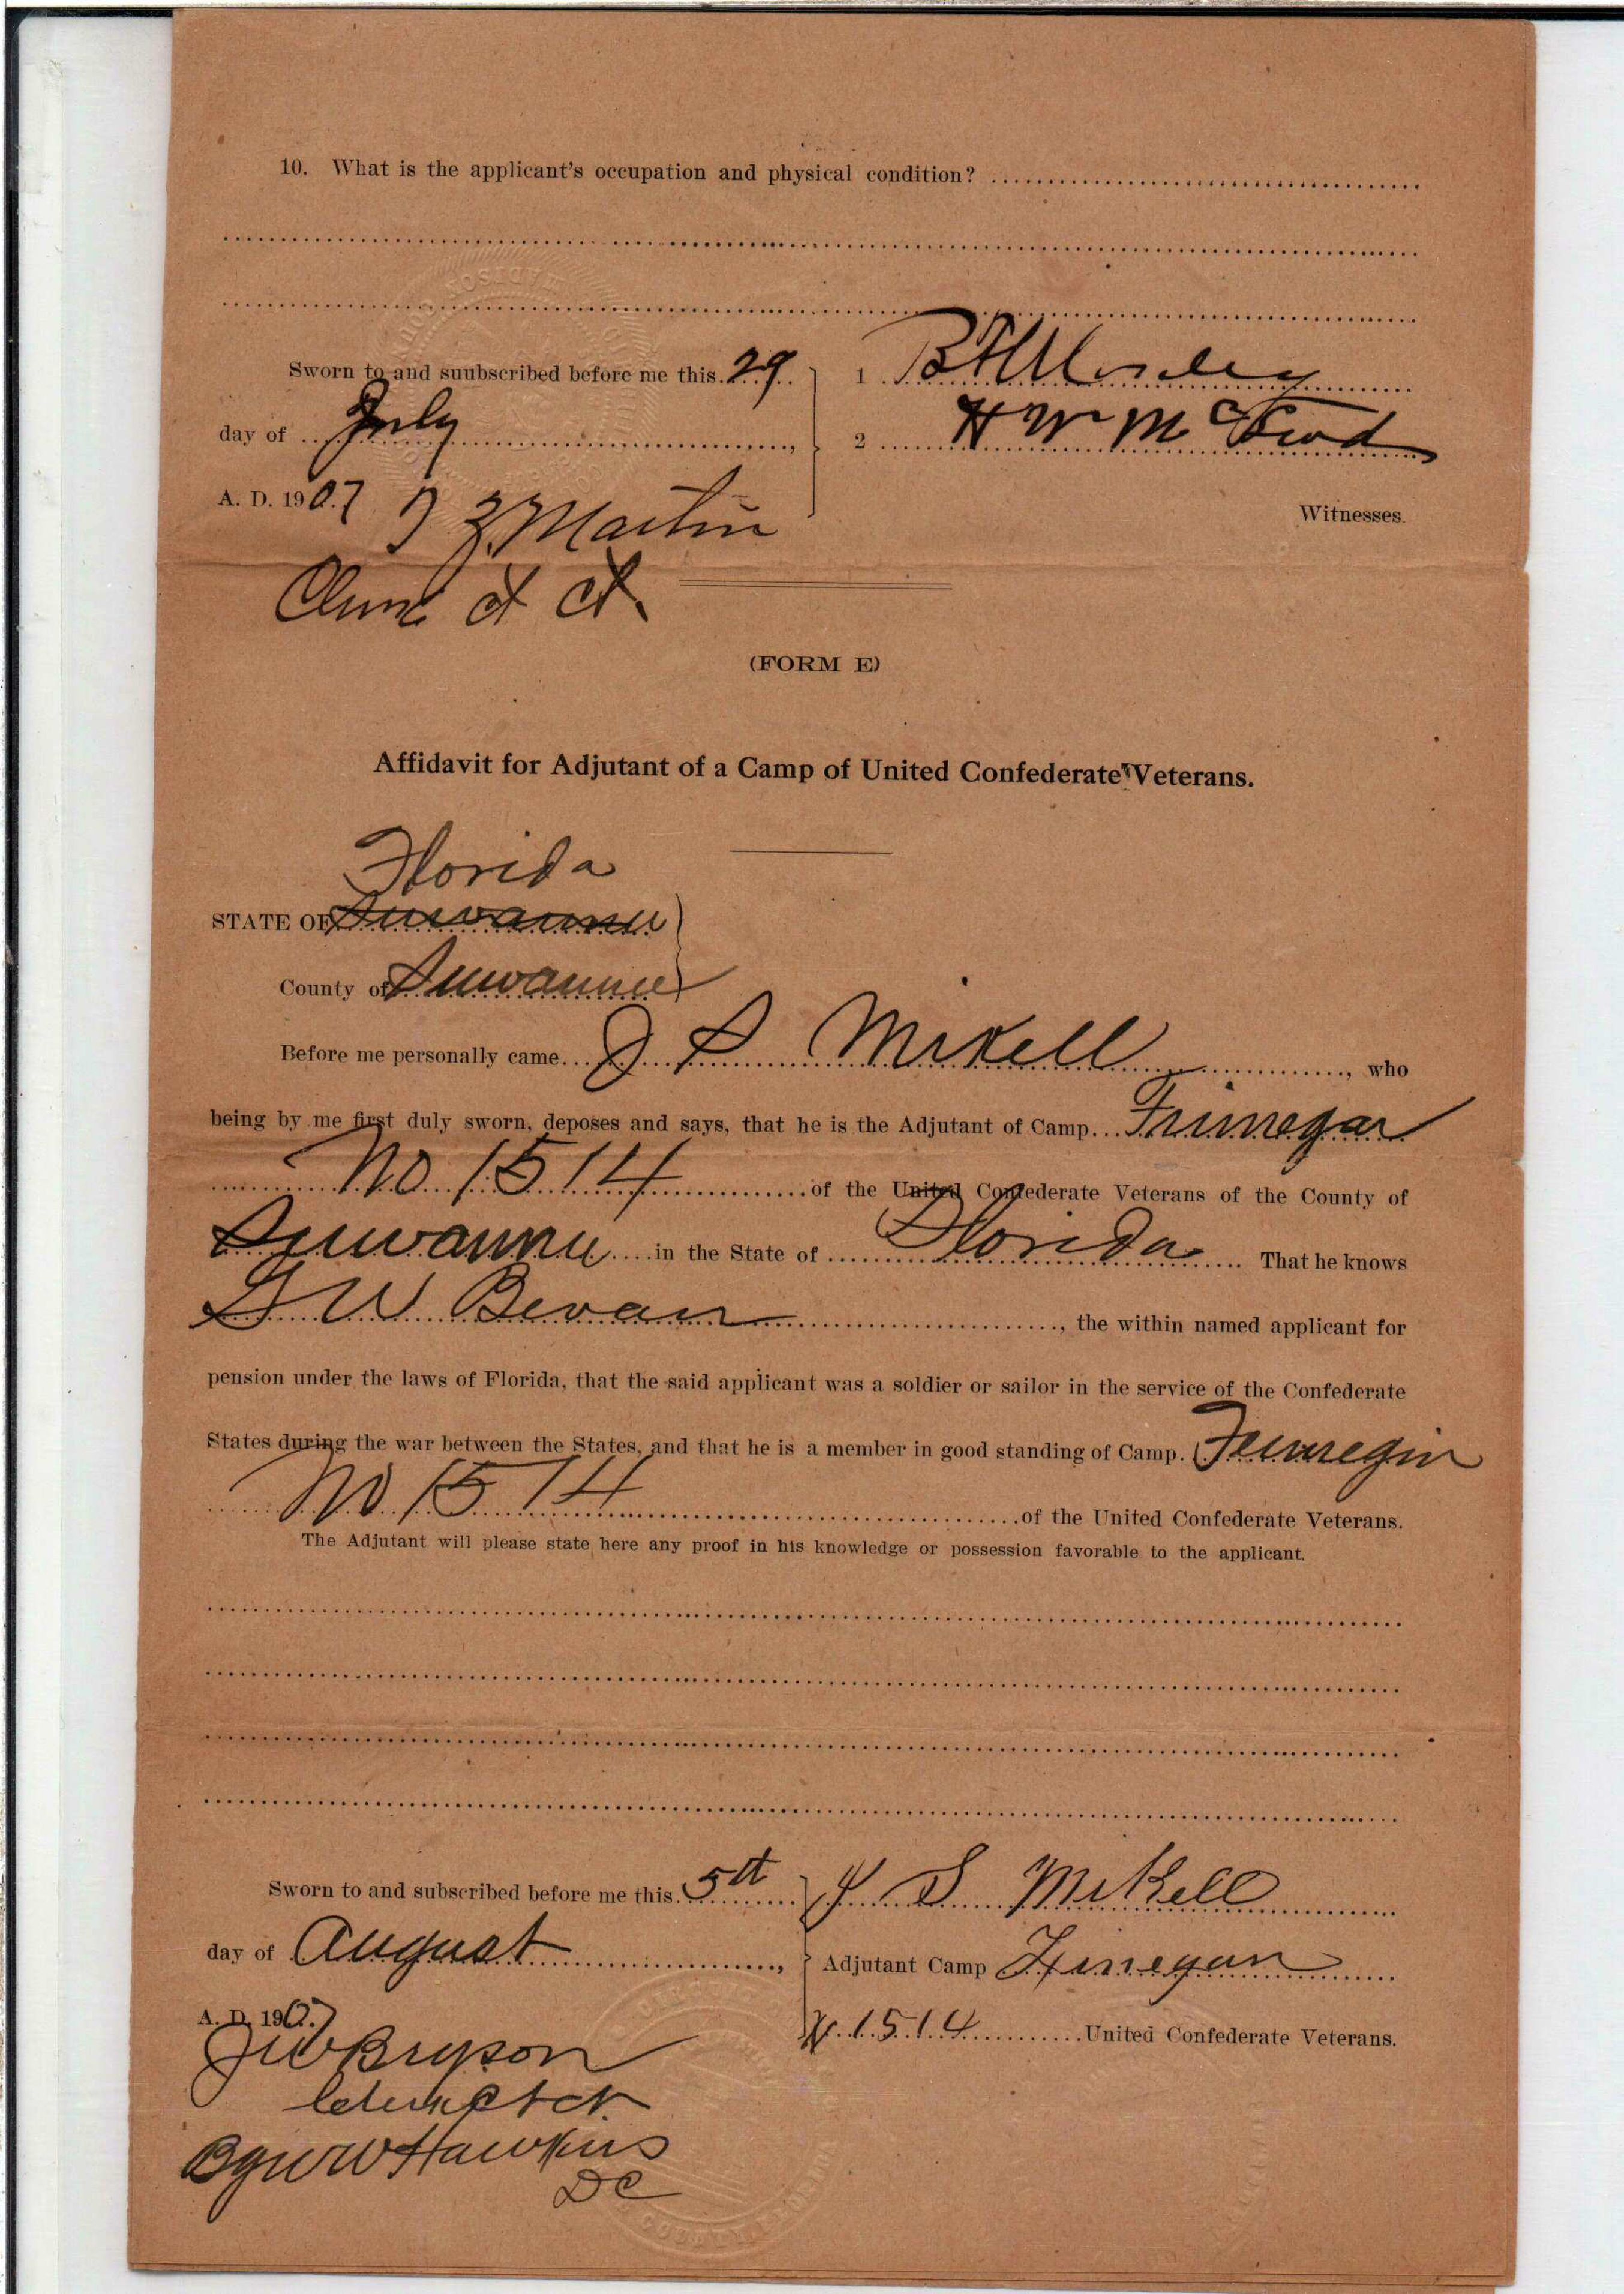 10. What is the applicant's occupation and physical condition?
Sworn to and suubscribed before me this 29
1 B H Mosley
day of July,
2 H W
A. D. 1907
Witnesses.
Z Martin
Clerk Ct Ct.
(FORM E)
Affidavit for Adjutant of a Camp of United Confederate Veterans.
Florida
STATE OF Suwannee
County of Suwannee
Before me personally came J S Mikell, who
being by me first duly sworn, deposes and says, that he is the Adjutant of Camp Finnegan
No 1514 of the United Confederate Veterans of the County of
Suwannee in the State of Florida That he knows
G W Bevan, the within named applicant for
pension under the laws of Florida, that the said applicant was a soldier or sailor in the service of the Confederate
States during the war between the States, and that he is a member in good standing of Camp. Finnegin
No 1514 of the United Confederate Veterans.
The Adjutant will please state here any proof in his knowledge or possession favorable to the applicant.
Sworn to and subscribed before me this 5th
J S Mikell
day of August,
Adjutant Camp Finegan
A. D. 1907
1514 United Confederate Veterans.
JW Bryson
Clerk Ct Ct.
By W W Hawkins
DC